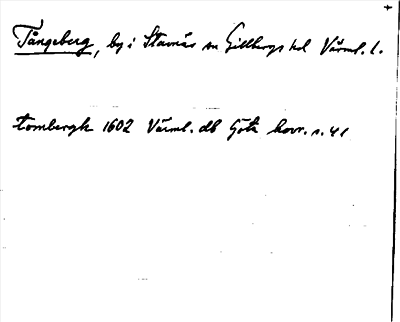 +
Tångeberg, by i Stavnäs sn Gillbergs hd Värml. l.
tombergh 1602 Värml. db Göta hovr. s. 41